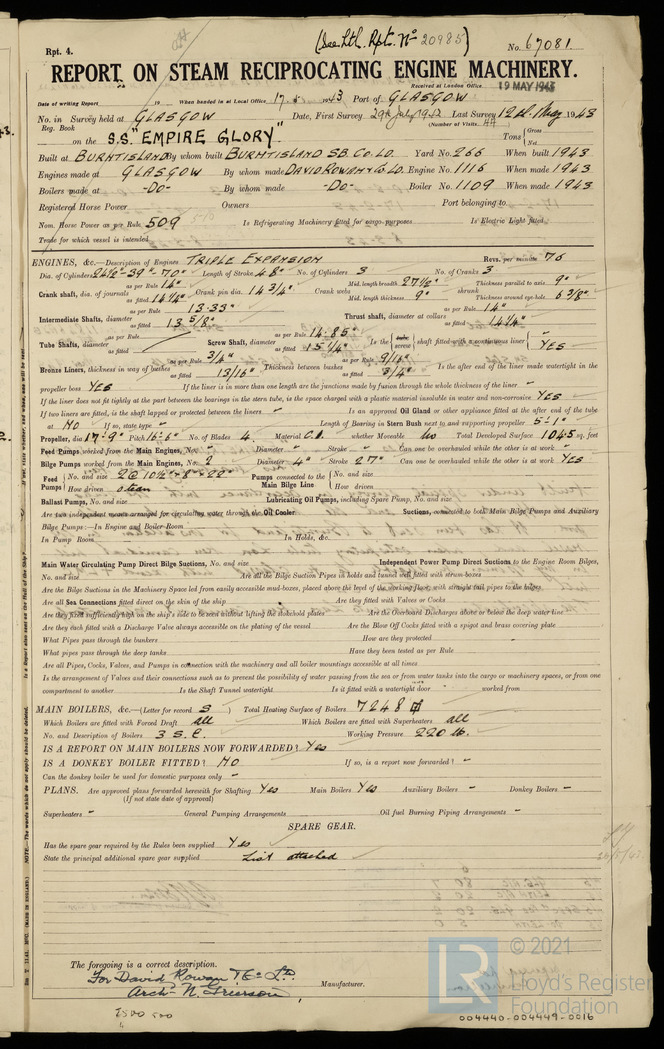 (See Lth. Rpt. No 20985)
Rpt. 4. No. 67081
REPORT ON STEAM RECIPROCATING ENGINE MACHINERY.
Received at London Office 19 MAY 1943
Date of writing Report 19 When handed in at Local Office 17. 5. 1943 Port of GLASGOW
No. in Survey held at GLASGOW Date, First Survey 29th July 1942 Last Survey 12th May 1943
Reg. Book (Number of Visits
on the S.S. "EMPIRE GLORY" Tons { Gross Net
Built at BURNTISLAND By whom built BURNTISLAND S.B. Co. LD. Yard No. 266 When built 1943
Engines made at GLASGOW By whom made DAVID ROWAN & Co. LD. Engine No. 1116 When made 1943
Boilers made at -Do- By whom made -Do- Boiler No. 1109 When made 1943
Registered Horse Power Owners Port belonging to
Nom. Horse Power as per Rule 509 Is Refrigerating Machinery fitted for cargo purposes Is Electric Light fitted
Trade for which vessel is intended
ENGINES, &c.—Description of Engines TRIPLE EXPANSION Revs. per minute 76
Dia. of Cylinders 24½"-39"-70" Length of Stroke 48" No. of Cylinders 3 No. of Cranks 3
Crank shaft, dia. of journals as per Rule 14" as fitted 14¼" Crank pin dia. 14¾" Crank webs Mid. length breadth 27½" Mid. length thickness 9" shrunk Thickness parallel to axis 9" Thickness around eye-hole 6⅜"
Intermediate Shafts, diameter as per Rule 13.33" as fitted 13⅝" Thrust shaft, diameter at collars as per Rule 14" as fitted 14¼"
Tube Shafts, diameter as per Rule as fitted Screw Shaft, diameter as per Rule 14.85" as fitted 15¼" Is the { tube screw } shaft fitted with a continuous liner { YES
Bronze Liners, thickness in way of bushes as per Rule 3/4" as fitted 13/16" Thickness between bushes as per Rule 9/16" as fitted 3/4" Is the after end of the liner made watertight in the
propeller boss YES If the liner is in more than one length are the junctions made by fusion through the whole thickness of the liner -
If the liner does not fit tightly at the part between the bearings in the stern tube, is the space charged with a plastic material insoluble in water and non-corrosive YES
If two liners are fitted, is the shaft lapped or protected between the liners - Is an approved Oil Gland or other appliance fitted at the after end of the tube
at NO If so, state type - Length of Bearing in Stern Bush next to and supporting propeller 5'-1"
Propeller, dia 17'-9" Pitch 16'-6" No. of Blades 4 Material C.I. whether Moveable No Total Developed Surface 104.5 sq. feet
Feed Pumps worked from the Main Engines, No. - Diameter - Stroke - Can one be overhauled while the other is at work -
Bilge Pumps worked from the Main Engines, No. 2 Diameter 4" Stroke 27" Can one be overhauled while the other is at work YES
Feed Pumps { No. and size 2 @ 10½" × 8" × 22" How driven steam Pumps connected to the Main Bilge Line { No. and size How driven
Ballast Pumps, No. and size Lubricating Oil Pumps, including Spare Pump, No. and size
Are two independent means arranged for circulating water through the Oil Cooler Suctions, connected to both Main Bilge Pumps and Auxiliary
Bilge Pumps:—In Engine and Boiler Room
In Pump Room In Holds, &c.
Main Water Circulating Pump Direct Bilge Suctions, No. and size Independent Power Pump Direct Suctions to the Engine Room Bilges,
No. and size Are all the Bilge Suction Pipes in holds and tunnel well fitted with strum-boxes
Are the Bilge Suctions in the Machinery Space led from easily accessible mud-boxes, placed above the level of the working floor, with straight tail pipes to the bilges
Are all Sea Connections fitted direct on the skin of the ship Are they fitted with Valves or Cocks
Are they fixed sufficiently high on the ship's side to be seen without lifting the stokehold plates Are the Overboard Discharges above or below the deep water line
Are they each fitted with a Discharge Valve always accessible on the plating of the vessel Are the Blow Off Cocks fitted with a spigot and brass covering plate
What Pipes pass through the bunkers How are they protected
What pipes pass through the deep tanks Have they been tested as per Rule
Are all Pipes, Cocks, Valves, and Pumps in connection with the machinery and all boiler mountings accessible at all times
Is the arrangement of Valves and their connections such as to prevent the possibility of water passing from the sea or from water tanks into the cargo or machinery spaces, or from one
compartment to another Is the Shaft Tunnel watertight Is it fitted with a watertight door worked from
MAIN BOILERS, &c.—(Letter for record S) Total Heating Surface of Boilers 7248
Which Boilers are fitted with Forced Draft all Which Boilers are fitted with Superheaters all
No. and Description of Boilers 3 S.E. Working Pressure 220 lb.
IS A REPORT ON MAIN BOILERS NOW FORWARDED? Yes
IS A DONKEY BOILER FITTED? NO If so, is a report now forwarded? -
Can the donkey boiler be used for domestic purposes only -
PLANS. Are approved plans forwarded herewith for Shafting Yes Main Boilers Yes Auxiliary Boilers - Donkey Boilers -
(If not state date of approval)
Superheaters - General Pumping Arrangements - Oil fuel Burning Piping Arrangements -
SPARE GEAR.
Has the spare gear required by the Rules been supplied Yes
State the principal additional spare gear supplied List attached
The foregoing is a correct description.
For David Rowan & Co. Ltd.
Archd. N. Grierson Manufacturer.
© 2021
Lloyd's Register
Foundation
004440-004449-0016